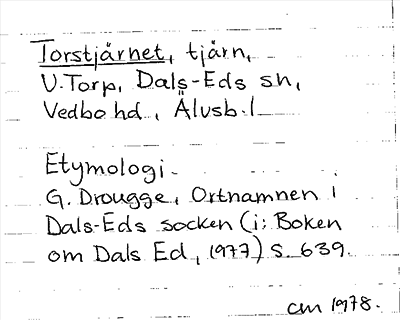 Torstjärnet, tjärn,
V. Torp, Dals-Eds sn,
Vedbo hd, Älvsb. l
Etymologi.
G. Drougge, Ortnamnen i
Dals-Eds socken (i: Boken
om Dals Ed, 1977) s. 639.
cm 1978.